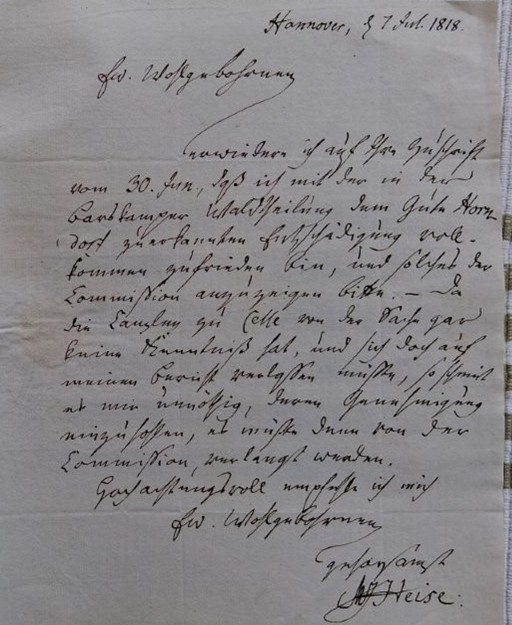 Hannover, d 7 Jul. 1818.
Ew. Wohlgebohrnen
erwiedere ich auf Ihre Zuschrift
vom 30. Jun, daß ich mit der in der
Barskamper Waldtheilung dem Gute Horn
dorf zuerkannten Entschädigung voll-
kommen zufrieden bin, und solches der
Commission anzuzeigen bitte. – Da
die Canzley zu Celle von der Sache gar
keine Kenntniß hat, und sich doch auf
meinen Bericht verlassen müßte, so scheint
es mir unnöthig, deren Genehmigung
einzuhohlen, es müßte denn von der
Commission, verlangt werden.
Hochachtungsvoll empfehle ich mich
Ew. Wohlgebohrnen
gehorsamst
Heise.